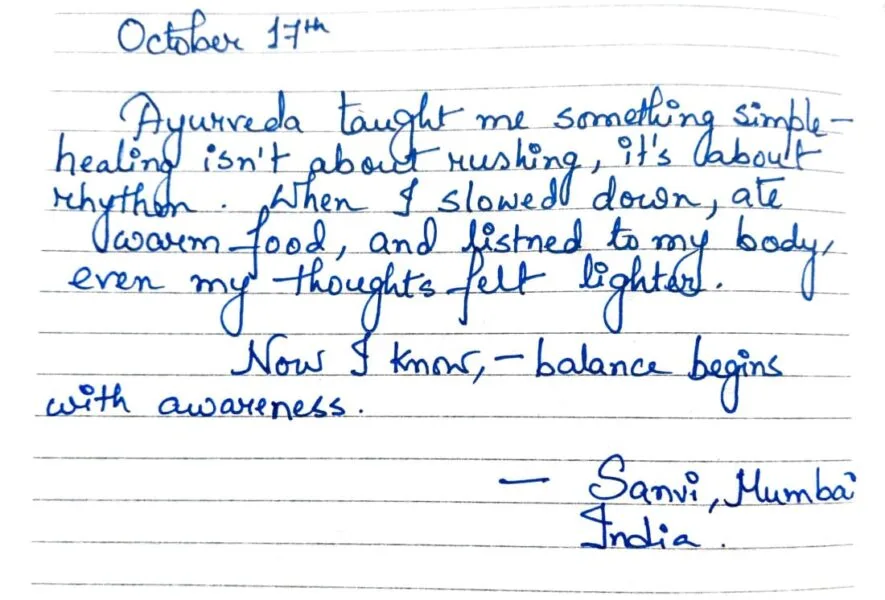 October 17th
Ayurveda taught me something simple –
healing isn't about rushing, it's about
rhythm. When I slowed down, ate
warm food, and listned to my body,
even my thoughts felt lighter.
Now I know, – balance begins
with awareness.
— Sanvi, Mumbai
India.